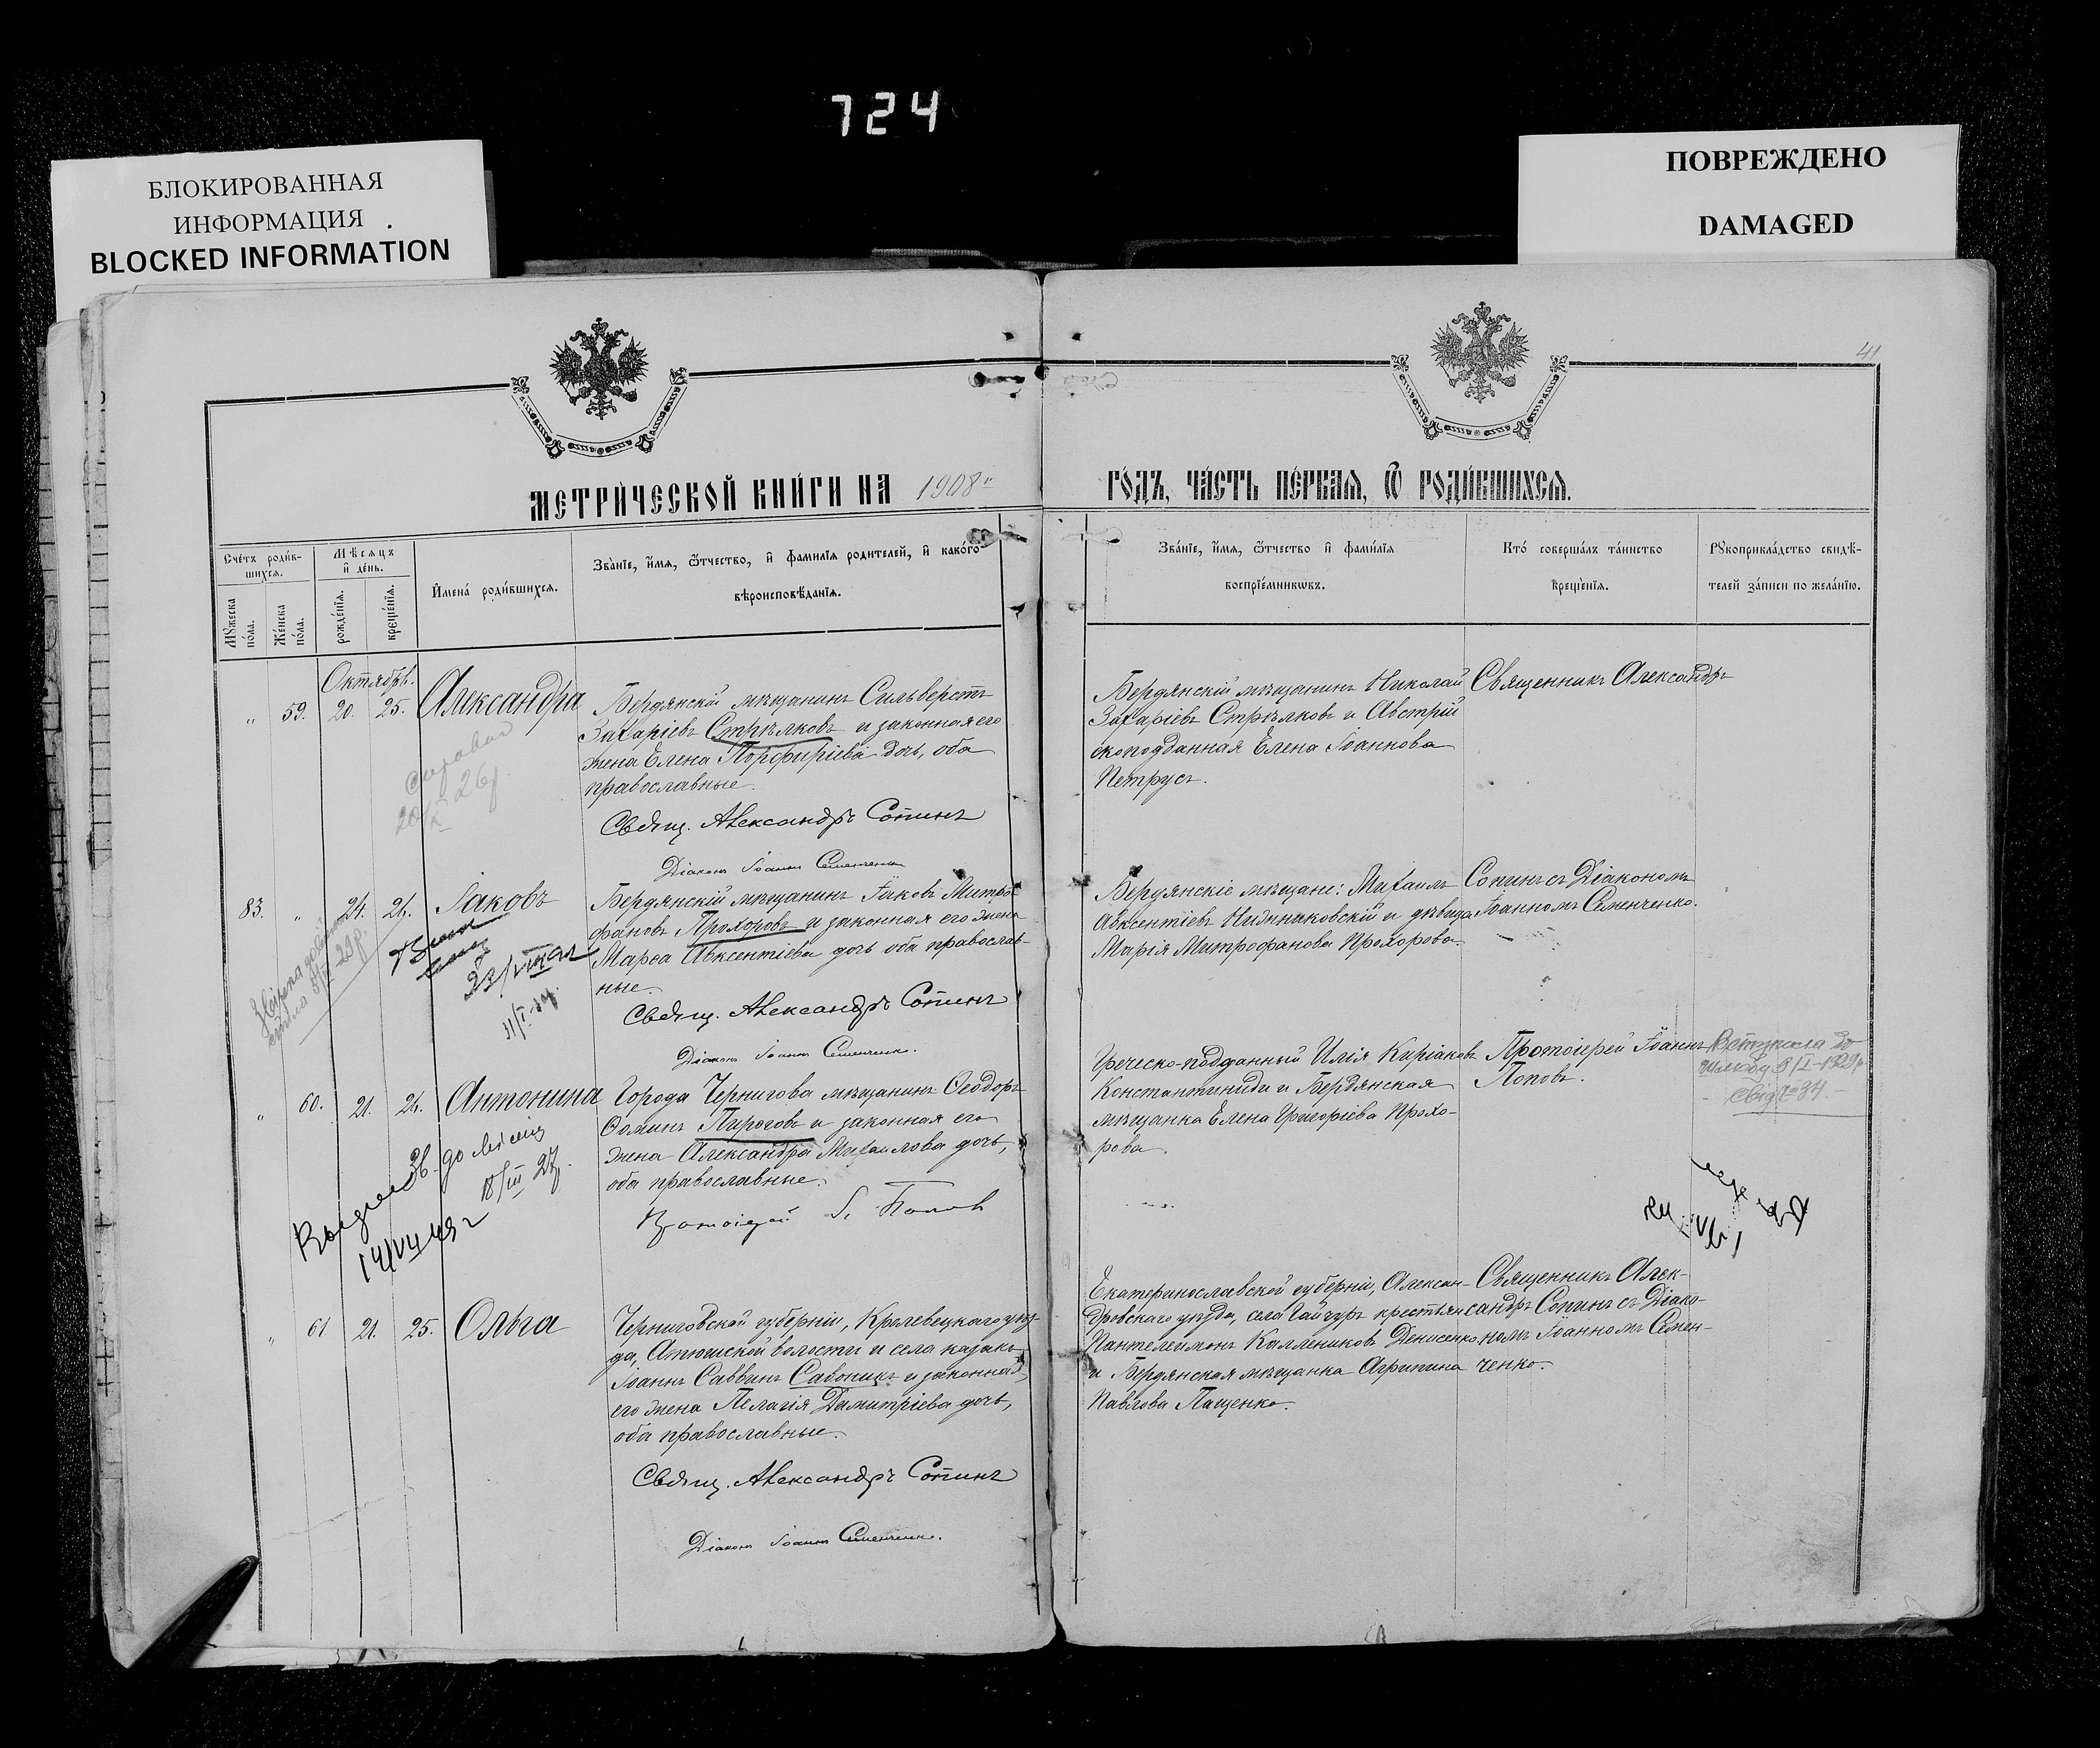 724
БЛОКИРОВАННАЯ
ИНФОРМАЦИЯ
BLOCKED INFORMATION
ПОВРЕЖДЕНО
DAMAGED
41
МЕТРИЧЕСКОЙ КНИГИ НА 1908
ГОДЪ, ЧАСТЬ ПЕРВАЯ, Ѿ РОДИВШИХСЯ.
Счетъ родив-
шихся.
Мꙋжеска пола.
Женска пола.
Мѣсяцъ
и день.
рожденїя.
крещенїя.
Имена родившихся.
Званїе, имя, ѿчество, и фамилїя родителей, и какого
вѣроисповѣданїя.
Званїе, имя, ѿчество и фамилїя
воспрїемникѡвъ.
Кто совершалъ таинство
крещенїя.
Рꙋкоприкладство свидѣ-
телей записи по желанїю.
Октябрь.
" 59. 20. 25. Александра
Бердянскій мѣщанинъ Сильверстъ
Захаріевъ Стрѣлковъ и законная его
жена Елена Порфиріева дочь, оба
православные.
Свящ. Александръ Сопинъ
Діаконъ Іоаннъ Семенченко
Бердянскій мѣщанинъ Николай
Захаріевъ Стрѣлковъ и Австрій
скоподданная Елена Іоаннова
Петрусъ.
Священникъ Александръ
Сопинъ съ Діакономъ
Іоанномъ Семенченко.
83. " 24. 26. Іаковъ
Бердянскій мѣщанинъ Іаковъ Митро
фановъ Прохоровъ и законная его жена
Марѳа Авксентіева дочь оба православ-
ные.
Свящ. Александръ Сопинъ
Діаконъ Іоаннъ Семенченко.
Бердянскіе мѣщане: Михаилъ
Авксентіевъ Нижниковскій и дѣвица
Марія Митрофанова Прохорова.
" 60. 21. 26. Антонина
Города Чернигова мѣщанинъ Ѳеодоръ
Ѳоминъ Пироговъ и законная его
жена Александра Михаилова дочь,
оба православные.
Протоіерей І. Поповъ
Греческо-подданный Илія Киріаковъ
Константиниди и Бердянская
мѣщанка Елена Григоріева Прохо-
рова.
Протоіерей Іоаннъ
Поповъ.
18/III 27
" 61 21. 25. Ольга
Черниговской губерніи, Кролевецкаго уѣз-
да, Атюшской волости и села казакъ
Іоаннъ Саввинъ Савоникъ и законная
его жена Пелагія Димитріева дочь,
оба православные.
Свящ. Александръ Сопинъ
Діаконъ Іоаннъ Семенченко.
Екатеринославской губерніи, Алексан-
дровскаго уѣзда, села Гайчуръ крестьян
Пантелеимонъ Каллениковъ Денисенко
и Бердянская мѣщанка Агрипина
Павлова Пащенко.
Священникъ Алек-
сандръ Сопинъ съ Діако-
номъ Іоанномъ Семен-
ченко.